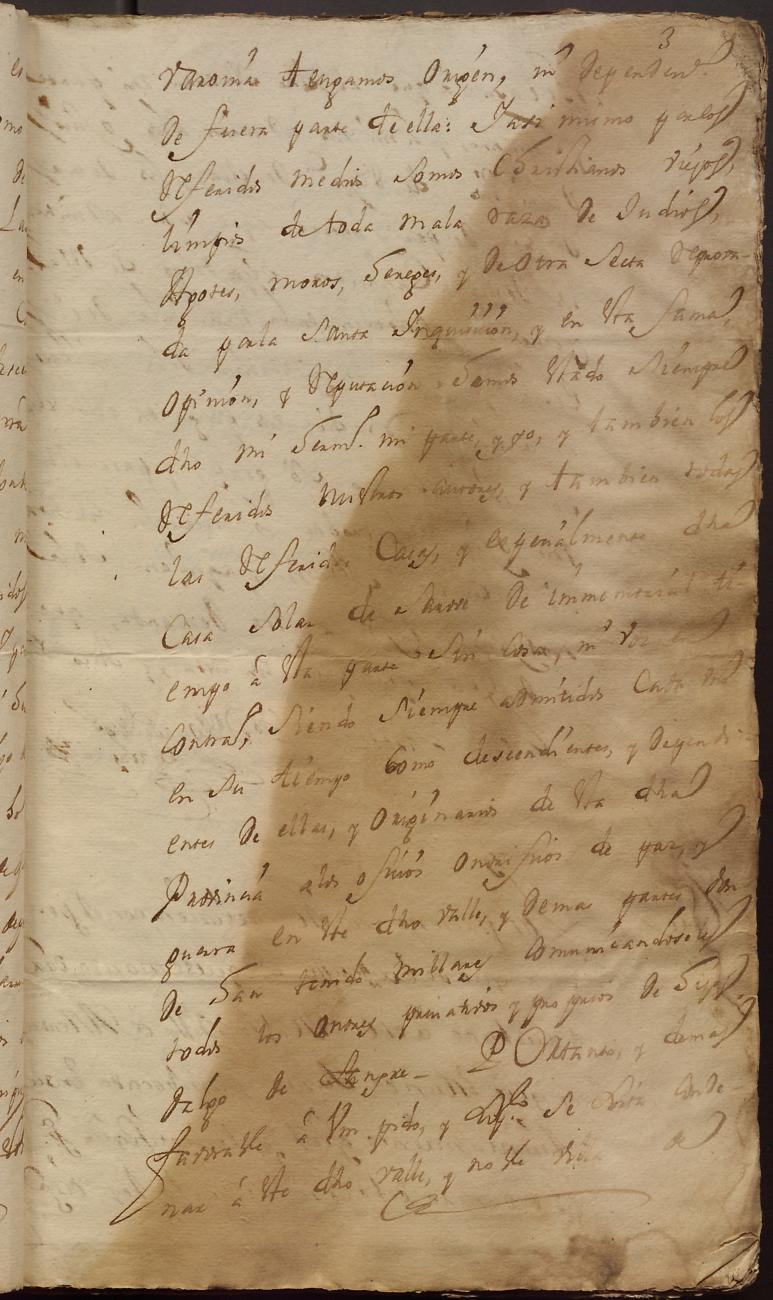 3
varonia tengamos Origen, ni dependen.ª
de fuera parte de ella: Iasi mimo por los
Referidos medios somos Christianos viejos,
limpios de toda mala raza de Judios,
Agotes, moros, hereges, y de otra secta reprova-
da por la Santa Inquisicion, y en Vta fama,
Opinion, y Reputacion hemos Vtado siempre
dho mi herm.º mi parte, y yo, y tambien los
Referidos nuestros autores, y tambien todas
las Referidas Casas, y especialmente dha
Casa Solar de de immemorial ti-
empo á Vta parte sin cosa, ni voz en
Contral, siendo siempre admitidos Cada
en su tiempo como descendientes, y dependi-
entes de ellas, y Originarios de Vta dha
Provincia a los ofiçios Onorifiços de paz, y
guerra en Vte dho valle, y demas partes don-
de han tenido millares comunicandoseles
todos los onores privativos y propios de hijos
dalgo de Sangre — POr tanto, y demas
favorable á Vm pido, y Sup.co se sirva conde-
nar á Vte dho valle, y noble de